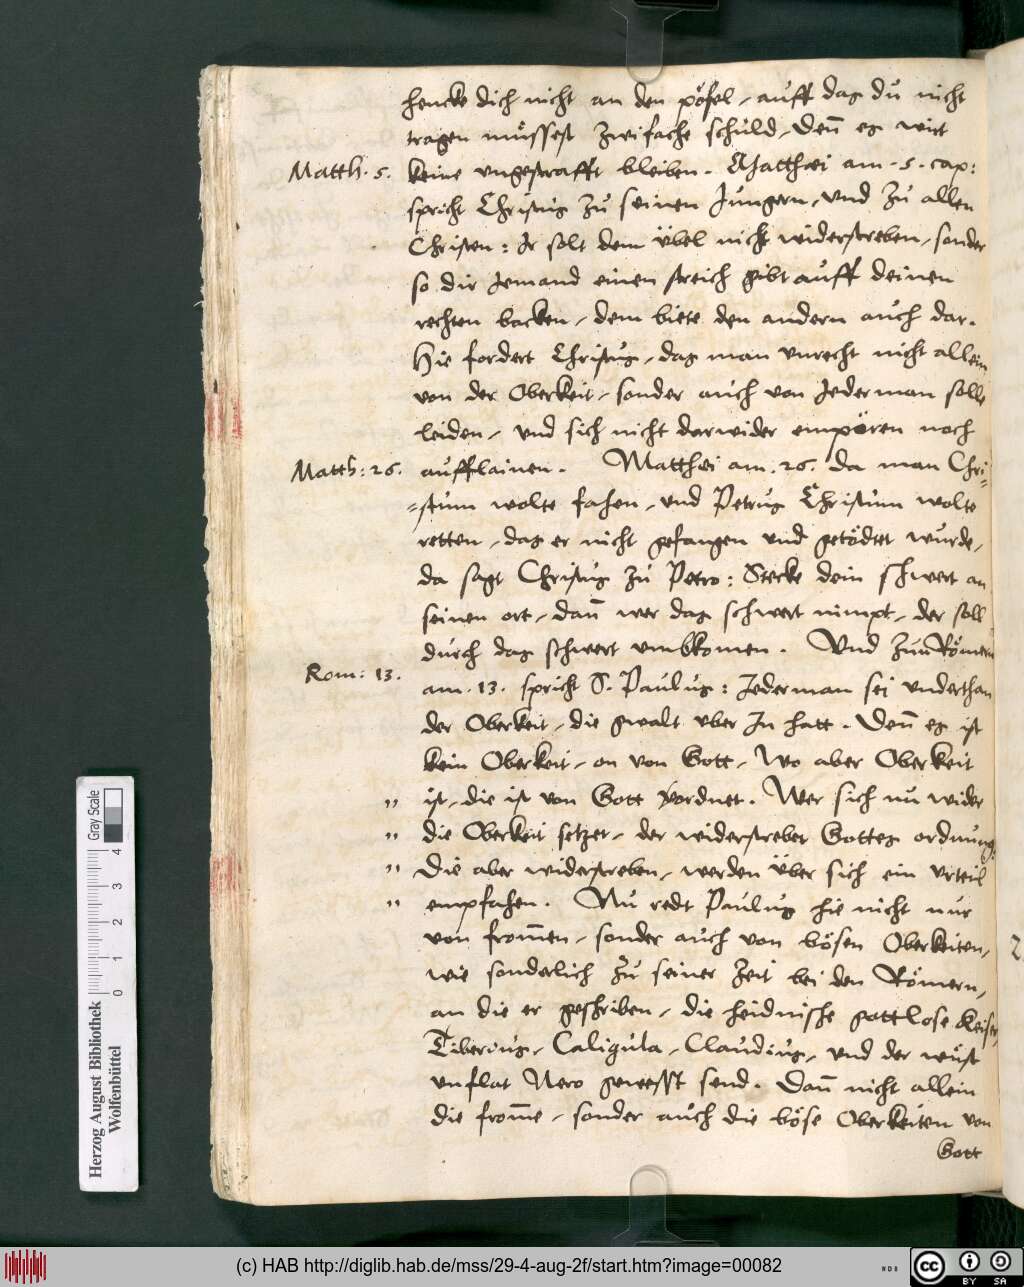 hencke dich nicht an den pöfel, auff das du nicht
tragen müssest zwifache schuld, Denn es wirt
Matth. 5.
keine ungestrafft bleiben. Matthæi am .5. cap:
spricht Christus zu seinen Jungern, und zu allen
Christen: Ir solt dem übel nicht widerstreben, sonder
so dir Jemand einen streich gibt auff deinen
rechten backen, dem biete den andern auch dar.
Hie fordert Christus, das man unrecht nicht allein
von der Oberkeit, sonder auch von Jederman solle
leiden, und sich nicht darwider empören noch
Matth: 26.
aufflainen. Matthæi am .26. da man Chri=
=stum wolte fahen, und Petrus Christum wolte
retten, das er nicht gefangen und getödtet wurde,
da sagt Christus zu Petro: Stecke dein schwert an
seinen ort, dan̄ wer das schwert nimpt, der soll
durch das schwert umbkomen. Und zun Römern
Rom: 13.
am .13. spricht S. Paulus: Jederman sei underthan
der Oberkeit, die gwalt uber In hatt. Den̄ es ist
kein Oberkeit, on von Gott, Wo aber Oberkeit
" ist, die ist von Gott verordnet. Wer sich nu wider
" die Oberkeit setzet, der widerstrebet Gottes ordnung:
" Die aber widerstreben, werden über sich ein urteil
" empfahen. Nu redt Paulus hie nicht nur
von from̄en, sonder auch von bösen Oberkeiten,
wie sonderlich zu seiner zeit bei den Römern,
an die er geschriben, die heidnische gottlose Keiser,
Tiberius, Caligula, Claudius, und der wüst
unflat Nero gewesst send. Dan̄ nicht allein
die from̄e, sonder auch die böse Oberkeiten von
Gott
Gray Scale
4
3
2
1
0
Herzog August Bibliothek
Wolfenbüttel
(c) HAB http://diglib.hab.de/mss/29-4-aug-2f/start.htm?image=00082
cc
BY SA